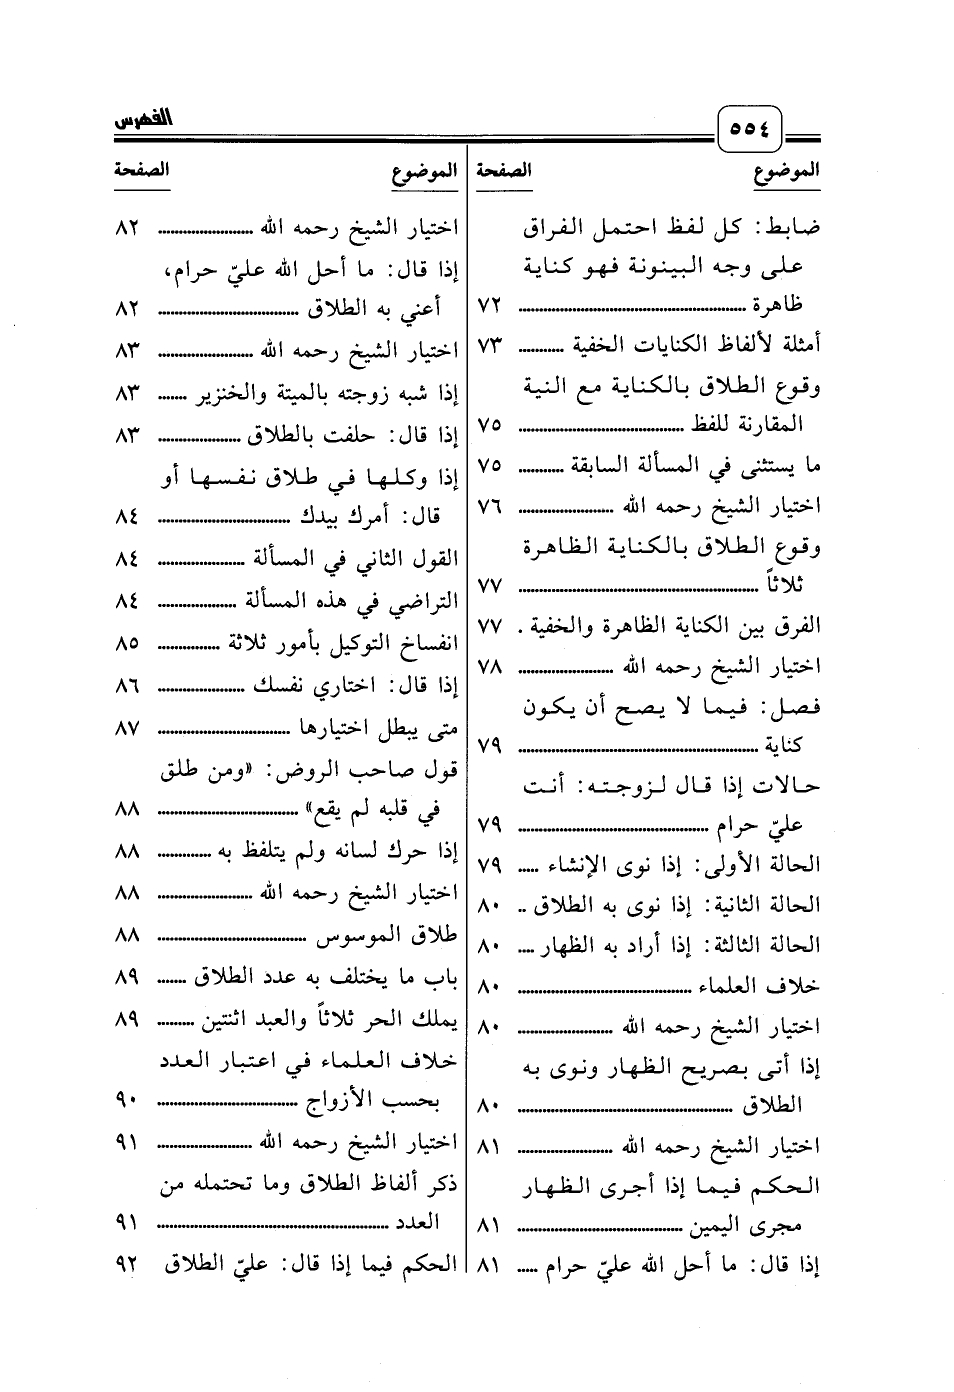 ٥٥٤
الفهرس
الموضوع الصفحة
ضابط: كل لفظ احتمل الفراق
على وجه البينونة فهو كناية
ظاهرة ........................................ ٧٢
أمثلة لألفاظ الكنايات الخفية ........... ٧٣
وقوع الطلاق بالكناية مع النية
المقارنة للفظ ........................................ ٧٥
ما يستثنى في المسألة السابقة ........... ٧٥
اختيار الشيخ رحمه الله ...................... ٧٦
وقوع الطلاق بالكناية الظاهرة
ثلاثاً ........................................ ٧٧
الفرق بين الكناية الظاهرة والخفية . ٧٧
اختيار الشيخ رحمه الله ...................... ٧٨
فصل: فيما لا يصح أن يكون
كناية ........................................ ٧٩
حالات إذا قال لزوجته: أنت
عليّ حرام ........................................ ٧٩
الحالة الأولى: إذا نوى الإنشاء ..... ٧٩
الحالة الثانية: إذا نوى به الطلاق .. ٨٠
الحالة الثالثة: إذا أراد به الظهار .... ٨٠
خلاف العلماء ........................................ ٨٠
اختيار الشيخ رحمه الله ...................... ٨٠
إذا أتى بصريح الظهار ونوى به
الطلاق ........................................ ٨٠
اختيار الشيخ رحمه الله ...................... ٨١
الحكم فيما إذا أجرى الظهار
مجرى اليمين ........................................ ٨١
إذا قال: ما أحل الله عليّ حرام ..... ٨١
الموضوع الصفحة
اختيار الشيخ رحمه الله ...................... ٨٢
إذا قال: ما أحل الله عليّ حرام،
أعني به الطلاق ................................ ٨٢
اختيار الشيخ رحمه الله ...................... ٨٣
إذا شبه زوجته بالميتة والخنزير ....... ٨٣
إذا قال: حلفت بالطلاق .................... ٨٣
إذا وكلها في طلاق نفسها أو
قال: أمرك بيدك ................................ ٨٤
القول الثاني في المسألة .................... ٨٤
التراضي في هذه المسألة ................... ٨٤
انفساخ التوكيل بأمور ثلاثة ............... ٨٥
إذا قال: اختاري نفسك .................... ٨٦
متى يبطل اختيارها ................................ ٨٧
قول صاحب الروض: «ومن طلق
في قلبه لم يقع» ................................ ٨٨
إذا حرك لسانه ولم يتلفظ به ............. ٨٨
اختيار الشيخ رحمه الله ...................... ٨٨
طلاق الموسوس ................................ ٨٨
باب ما يختلف به عدد الطلاق ....... ٨٩
يملك الحر ثلاثاً والعبد اثنتين ......... ٨٩
خلاف العلماء في اعتبار العدد
بحسب الأزواج ................................ ٩٠
اختيار الشيخ رحمه الله ...................... ٩١
ذكر ألفاظ الطلاق وما تحتمله من
العدد ........................................ ٩١
الحكم فيما إذا قال: عليّ الطلاق ٩٢